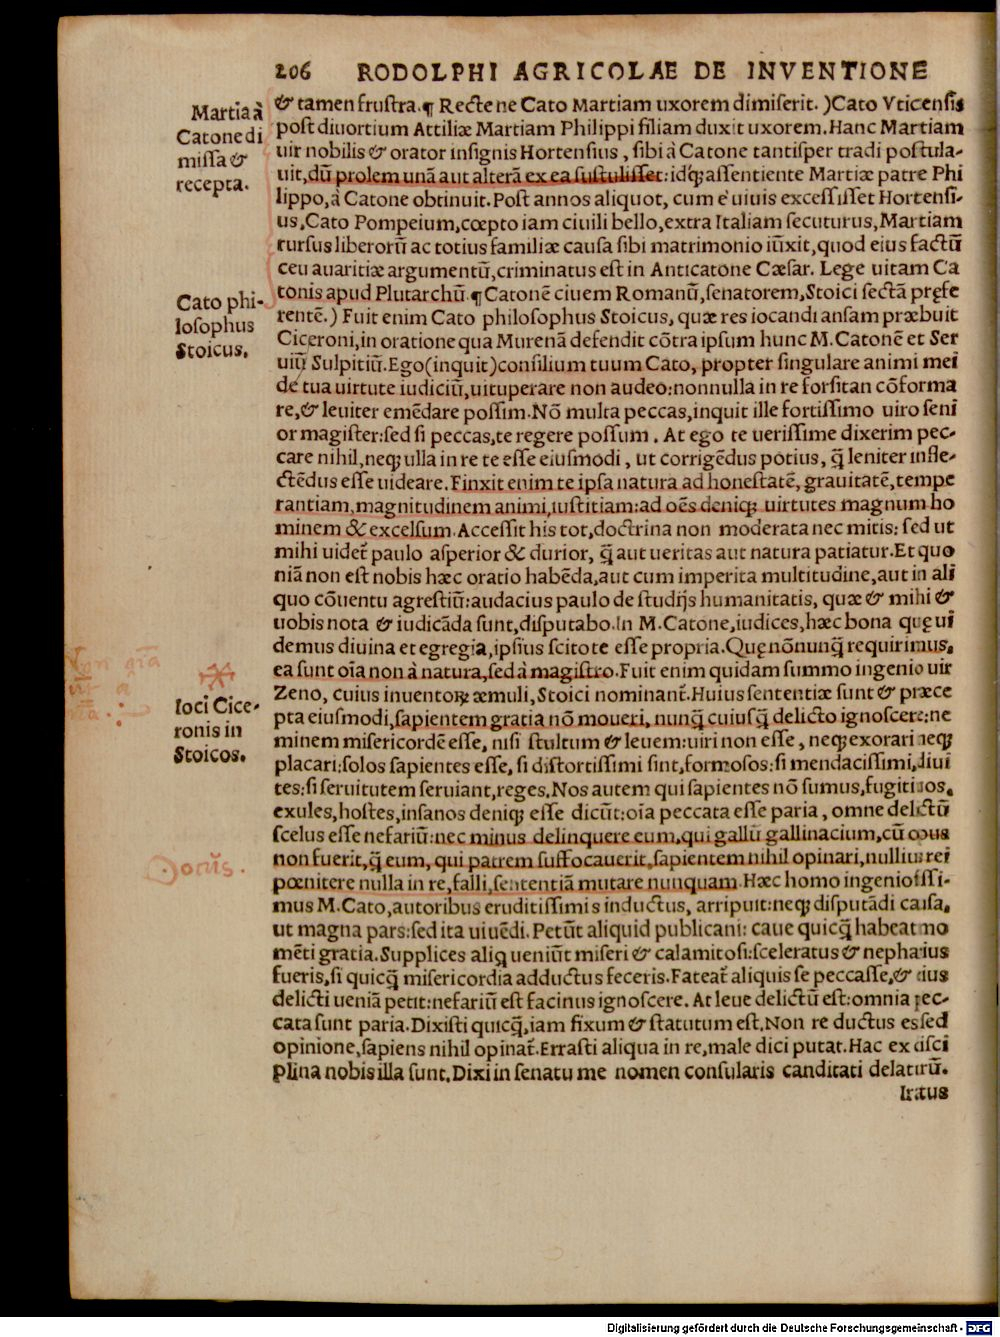 206 RODOLPHI AGRICOLAE DE INVENTIONE
Martia à
Catone di
missa &
recepta.
& tamen frustra.¶ Recte ne Cato Martiam uxorem dimiserit. )Cato Vticensis
post diuortium Attiliæ Martiam Philippi filiam duxit uxorem. Hanc Martiam
uir nobilis & orator insignis Hortensius, sibi à Catone tantisper tradi postula-
uit, dũ prolem unã aut alterã ex ea sustulisset: idqꝫ assentiente Martiæ patre Phi
lippo, à Catone obtinuit. Post annos aliquot, cum è uiuis excessisset Hortensi-
us, Cato Pompeium, cœpto iam ciuili bello, extra Italiam secuturus, Martiam
rursus liberorũ ac totius familiæ causa sibi matrimonio iũxit, quod eius factũ
ceu auaritiæ argumentũ, criminatus est in Anticatone Cæsar. Lege uitam Ca
tonis apud Plutarchũ.¶Catonẽ ciuem Romanũ, senatorem, Stoici sectã pręfe
Cato phi-
losophus
Stoicus.
rentẽ.) Fuit enim Cato philosophus Stoicus, quæ res iocandi ansam præbuit
Ciceroni, in oratione qua Murenã defendit cõtra ipsum hunc M. Catonẽ et Ser
uiũ Sulpitiũ. Ego(inquit)consilium tuum Cato, propter singulare animi mei
de tua uirtute iudiciũ, uituperare non audeo: nonnulla in re forsitan cõforma
re, & leuiter emẽdare possim. Nõ multa peccas, inquit ille fortissimo uiro seni
or magister: sed si peccas, te regere possum. At ego te uerissime dixerim pec-
care nihil, neqꝫ ulla in re te esse eiusmodi, ut corrigẽdus potius, q̃ leniter infle-
ctẽdus esse uideare. Finxit enim te ipsa natura ad honestatẽ, grauitatẽ, tempe
rantiam, magnitudinem animi, iustitiam: ad oẽs deniqꝫ uirtutes magnum ho
minem & excelsum. Accessit his tot, doctrina non moderata nec mitis: sed ut
mihi uidet᷑ paulo asperior & durior, q̃ aut ueritas aut natura patiatur. Et quo
niã non est nobis hæc oratio habẽda, aut cum imperita multitudine, aut in ali
quo cõuentu agrestiũ: audacius paulo de studijs humanitatis, quæ & mihi &
uobis nota & iudicãda sunt, disputabo. In M. Catone, iudices, hæc bona quę ui
demus diuina et egregia, ipsius scitote esse propria. Quę nõnunq̃ requirimus,
ea sunt oĩa non à natura, sed à magistro. Fuit enim quidam summo ingenio uir
Ioci Cice-
ronis in
Stoicos.
Zeno, cuius inuentoꝝ æmuli, Stoici nominant᷑. Huius sententiæ sunt & præce
pta eiusmodi, sapientem gratia nõ moueri, nunq̃ cuiusq̃ delicto ignoscere: ne
minem misericordẽ esse, nisi stultum & leuem: uiri non esse, neqꝫ exorari neqꝫ
placari: solos sapientes esse, si distortissimi sint, formosos: si mendacissimi, diui
tes: si seruitutem seruiant, reges. Nos autem qui sapientes nõ sumus, fugitiuos,
exules, hostes, insanos deniqꝫ esse dicũt: oĩa peccata esse paria, omne delictũ
scelus esse nefariũ: nec minus delinquere eum, qui gallũ gallinacium, cũ opus
non fuerit, q̃ eum, qui patrem suffocauerit, sapientem nihil opinari, nullius rei
Donũs.
pœnitere nulla in re, falli, sententiã mutare nunquam. Hæc homo ingeniosissi-
mus M. Cato, autoribus eruditissimis inductus, arripuit: neqꝫ disputãdi causa,
ut magna pars: sed ita uiuẽdi. Petũt aliquid publicani: caue quicq̃ habeat mo
mẽti gratia. Supplices aliq ueniũt miseri & calamitosi: sceleratus & nepharius
fueris, si quicq̃ misericordia adductus feceris. Fateat᷑ aliquis se peccasse, & eius
delicti ueniã petit: nefariũ est facinus ignoscere. At leue delictũ est: omnia pec-
cata sunt paria. Dixisti quicq̃, iam fixum & statutum est. Non re ductus es sed
opinione, sapiens nihil opinat᷑. Errasti aliqua in re, male dici putat. Hac ex disci
plina nobis illa sunt. Dixi in senatu me nomen consularis canditati delaturũ.
Iratus
Digitalisierung gefördert durch die Deutsche Forschungsgemeinschaft - DFG